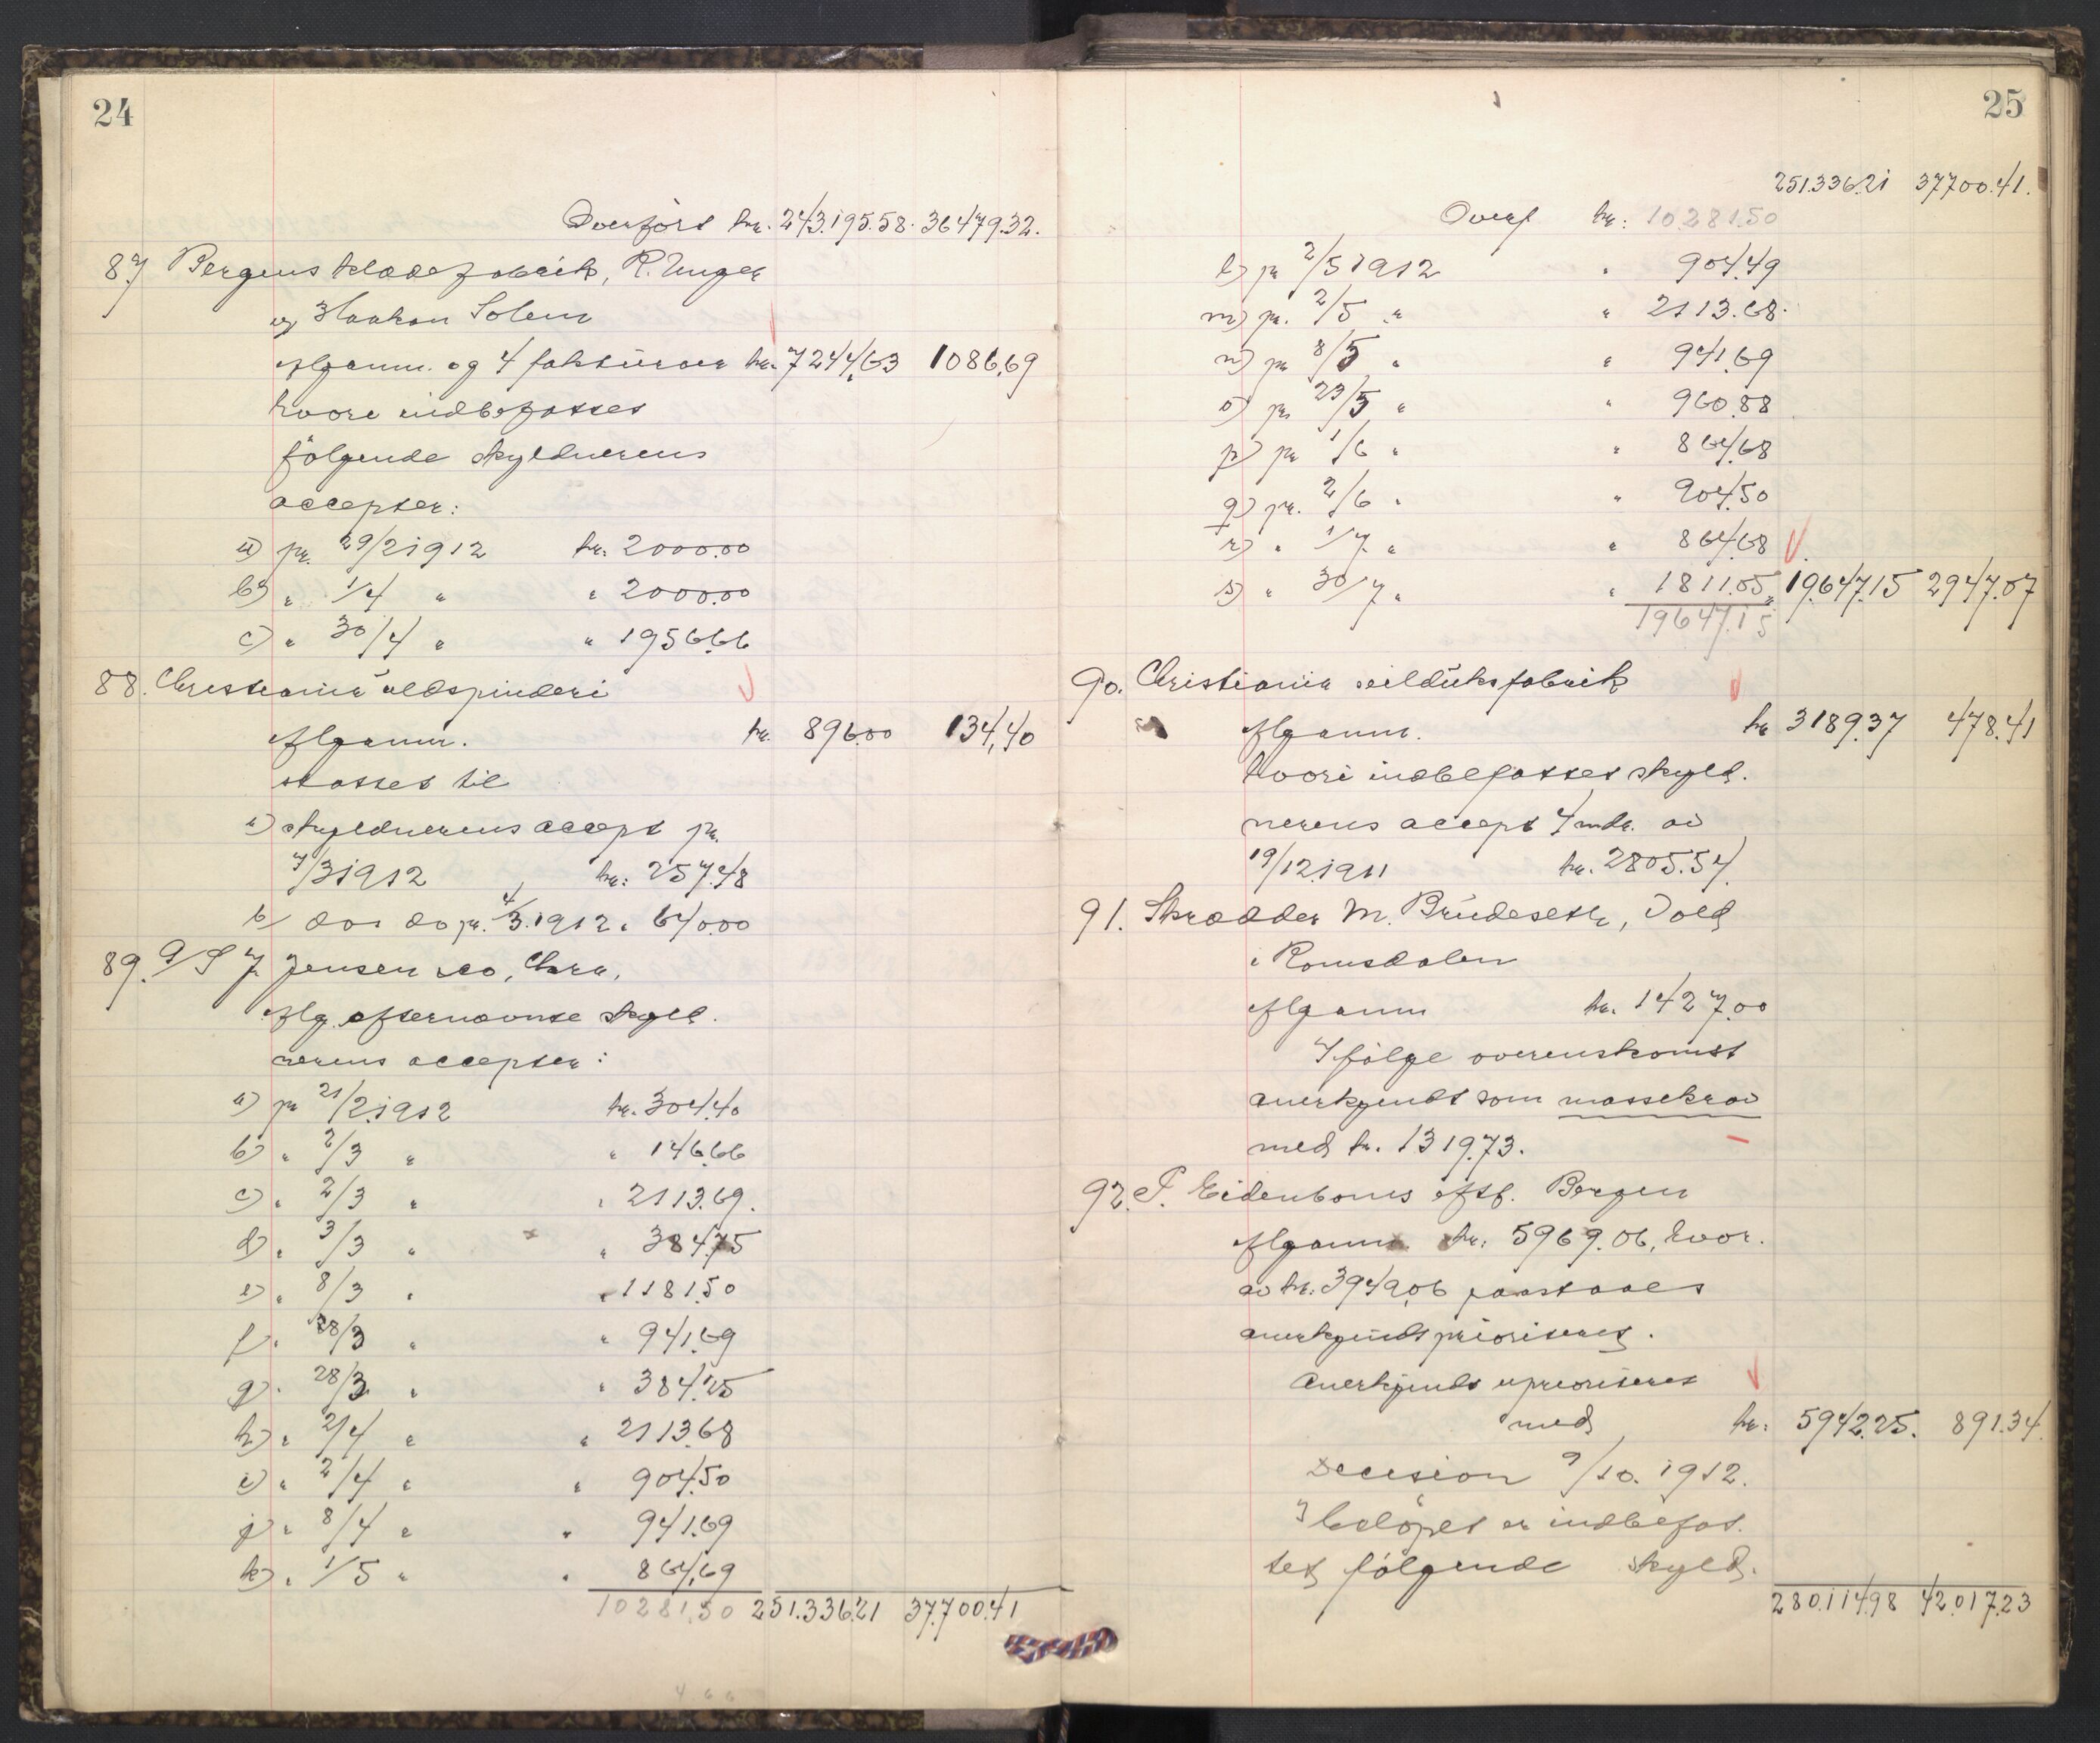 24
Overført kr. 243.195.58. 36479.32.
87 Bergens klædefabrik, R. Unger
og Haakon Solem
ifl. anm. og 4 fakturaer kr. 7244.63 1086.69
hvori indbefattes
følgende skyldnerens
accepter:
a) pr. 29/2 1912 kr. 2000.00
b) " 1/4 " " 2000.00
c) " 30/4 " " 1956.66
88. Christiania uldspinderi
ifl. anm. kr. 896.00 134.40
støttet til
a) skyldnerens accept pr.
7/3 1912 kr: 257.48
b) dos do pr. 4/3.1912 " 640.00
89. A/S J. Jensen & Co, Chra,
iflg. efternævnte skyld-
nerens accepter:
a) pr 21/2.1912 kr. 304.40
b) " 2/3 " " 146.66
c) " 2/3 " " 2113.69.
d) " 3/3 " " 384.75
e) " 8/3 " " 1181.50
f) " 28/3 " " 941.69
g) " 28/3 " " 384.25
h) " 2/4 " " 2113.68
i) " 2/4 " " 904.50
j) " 8/4 " " 941.69
k) " 1/5 " " 864.69
10281.50 251.336.21 37.700.41
25
251.336.21 37700.41.
Overf. kr: 10.281.50
l) pr 2/5 1912 " 904.49
m) pr. 2/5 " " 2113.68.
n) pr 8/5 " " 941.69
o) pr 23/5 " " 960.88
p) pr 1/6 " " 864.68
q) pr. 2/6 " " 904.50
r) " 1/7 " " 864.68
s) " 30/7 " " 1811.05 " 19.647.15 2947.07
19647.15
90. Christiania seildugsfabrik
ifl. anm. kr 3189.37 478.41
hvori indbefattes skyld-
nerens accept 4 mdr. av
19/12.1911 kr. 2805.54
91. Skrædder M. Brüdeseth, Vold
i Romsdalen
ifl. anm kr. 1427.00
Ifølge overenskomst
anerkjendt som massekrav
med kr. 1319.73.
92. P. Eidenboms eftf. Bergen
ifl. anm. kr. 5969.06, hvor-
av kr. 3949.06 paastaaes
anerkjendt prioritert.
Anerkjendt uprioritert
med kr: 5942.25. 891.34
Decision 9/10. 1912.
I beløpet er indbefat-
tet følgende skyld-
280.114.98 42.017.23